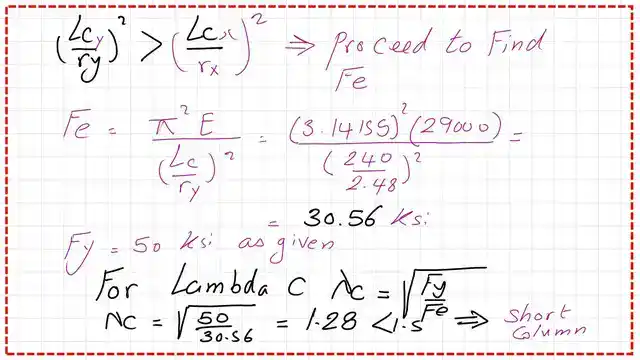 (Lcy/ry)² > (Lcx/rx)² ⇒ Proceed to Find Fe
Fe = π² E / (Lc/ry)² = (3.14155)² (29000) / (240/2.48)² =
= 30.56 Ksi
Fy = 50 Ksi as given
For Lambda C λc = √(Fy/Fe)
λc = √(50/30.56) = 1.28 <1.5 ⇒ Short Column